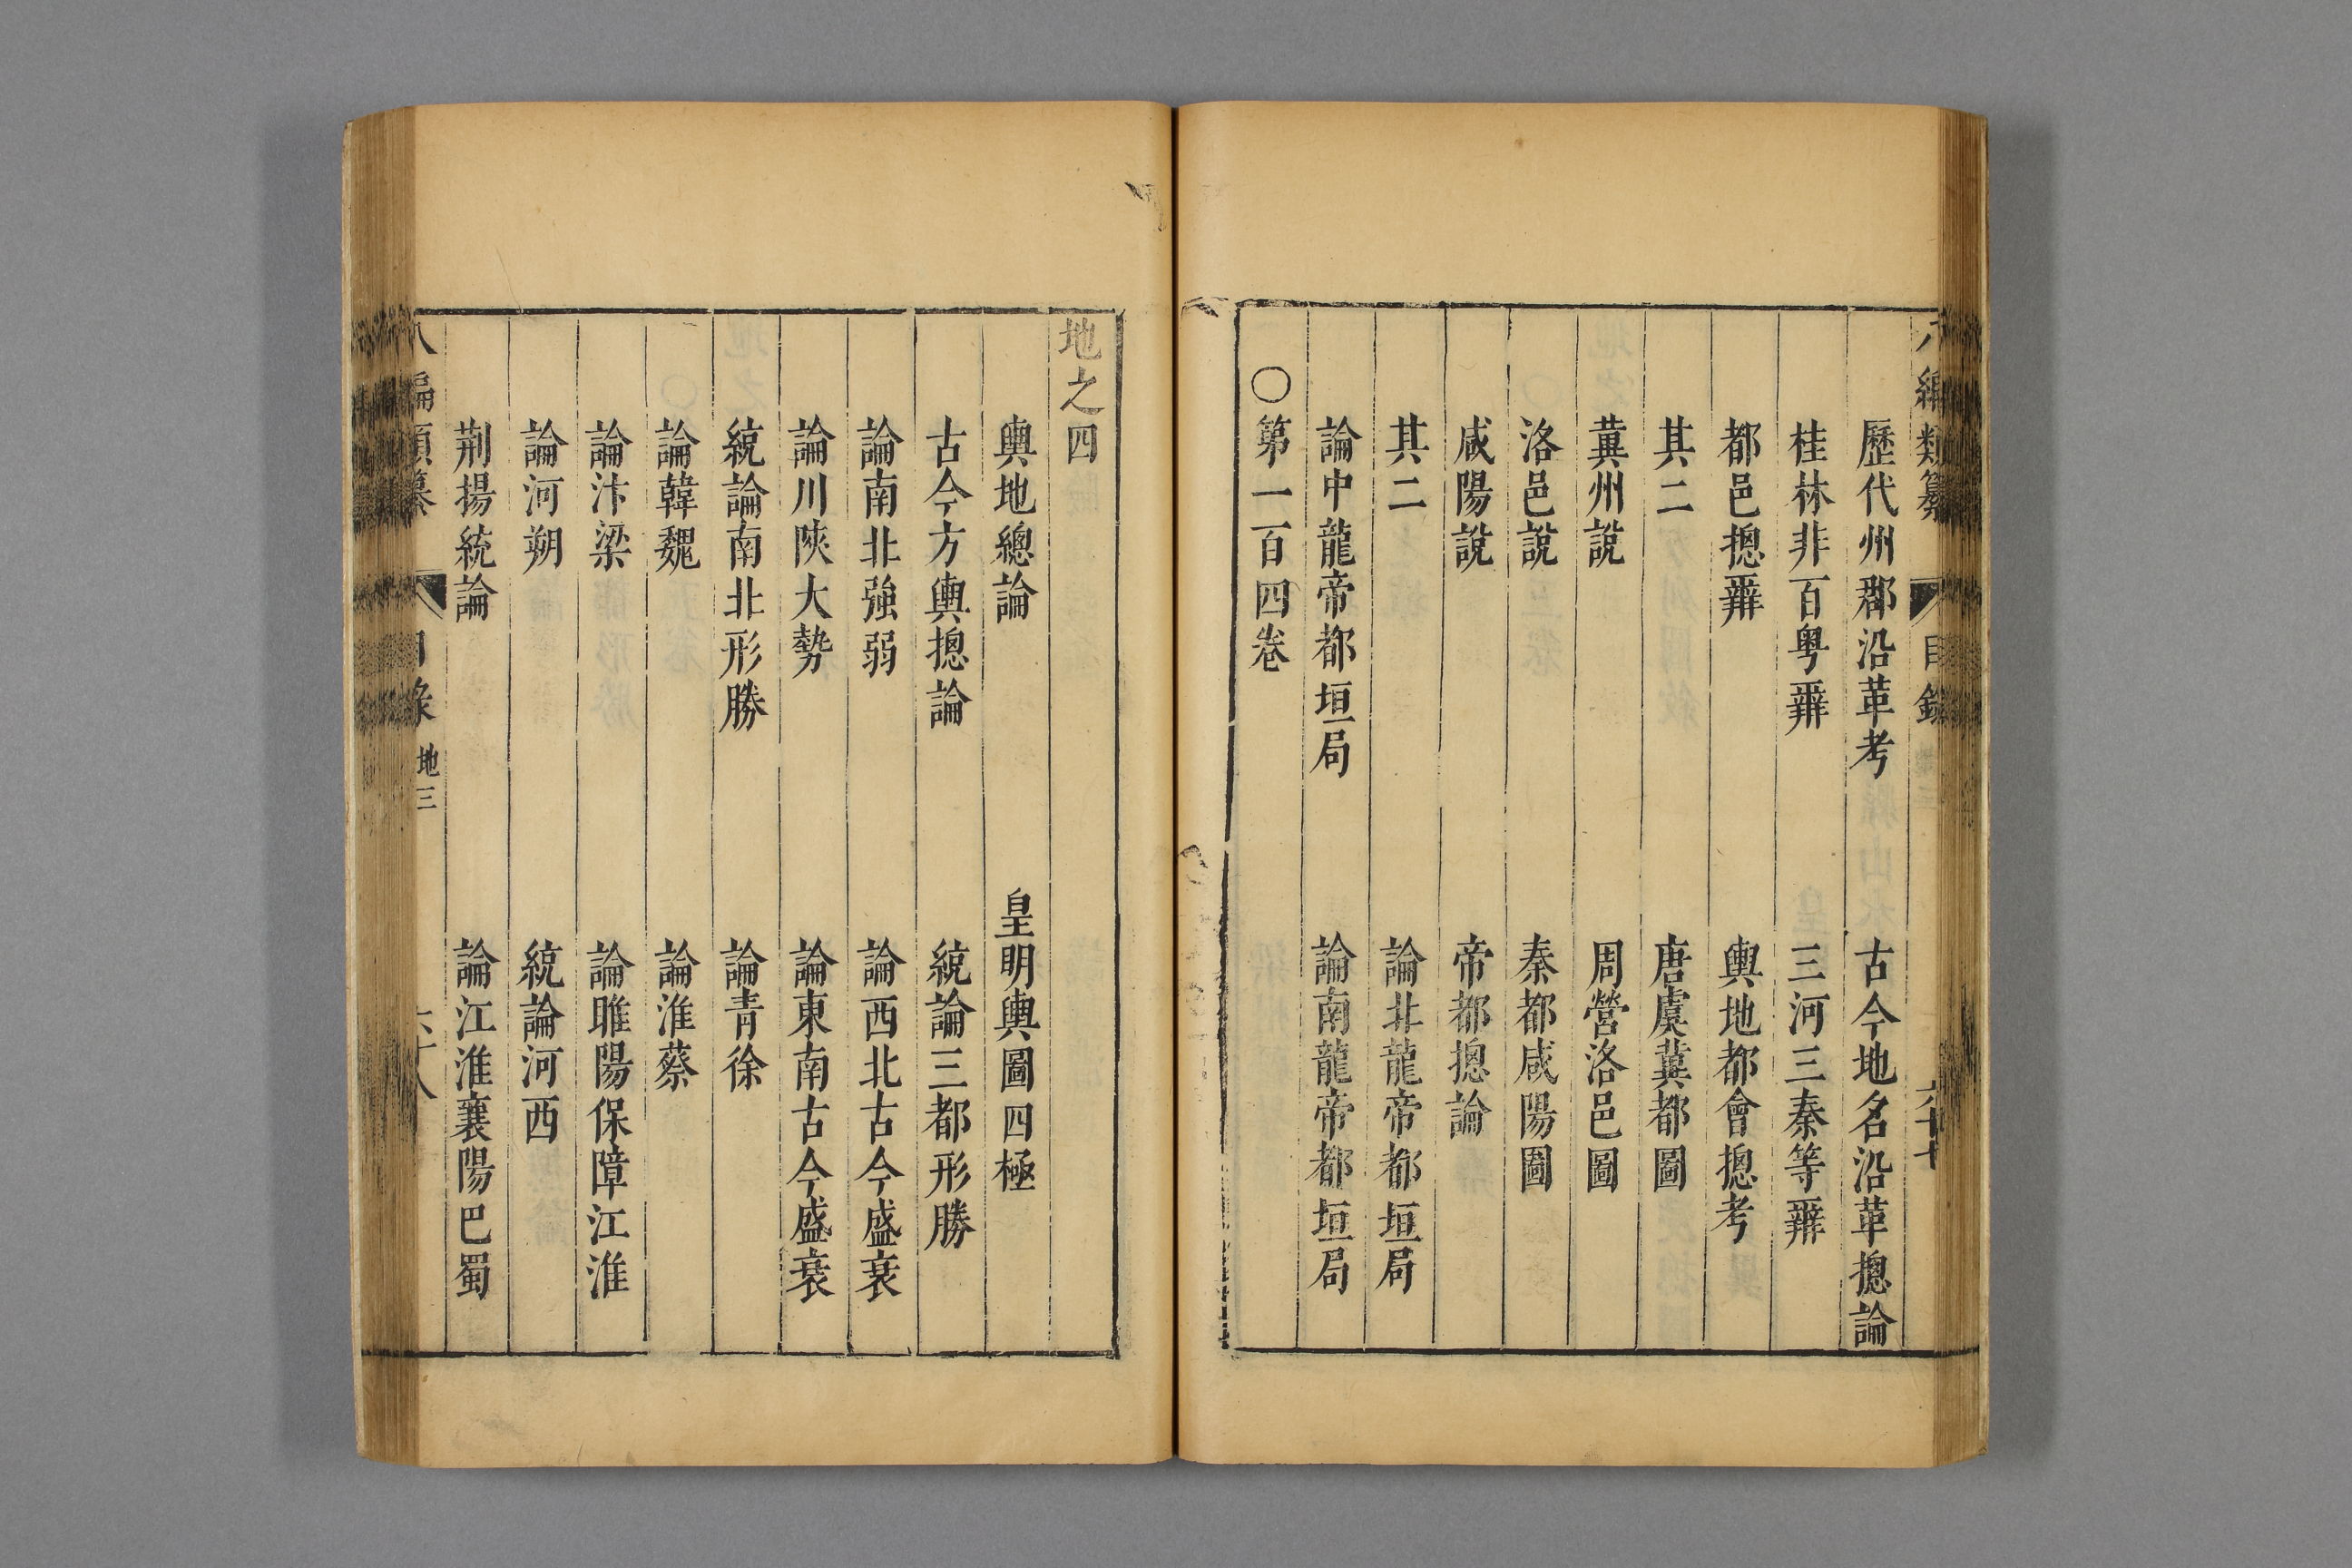 八編類纂 目錄 六十七
歷代州郡沿革考 古今地名沿革摠論
桂林非百粤辨 三河三秦等辨
都邑摠辨 輿地都會摠考
其二 唐虞冀都圖
冀州說 周營洛邑圖
洛邑說 秦都咸陽圖
咸陽說 帝都摠論
其二 論北龍帝都垣局
論中龍帝都垣局 論南龍帝都垣局
○第一百四卷
地之四
輿地總論 皇明輿圖四極
古今方輿摠論 統論三都形勝
論南北強弱 論西北古今盛衰
論川陝大勢 論東南古今盛衰
統論南北形勝 論青徐
論韓魏 論淮蔡
論汴梁 論睢陽保障江淮
論河朔 統論河西
荆揚統論 論江淮襄陽巴蜀
八編類纂 目錄 地三 六十八